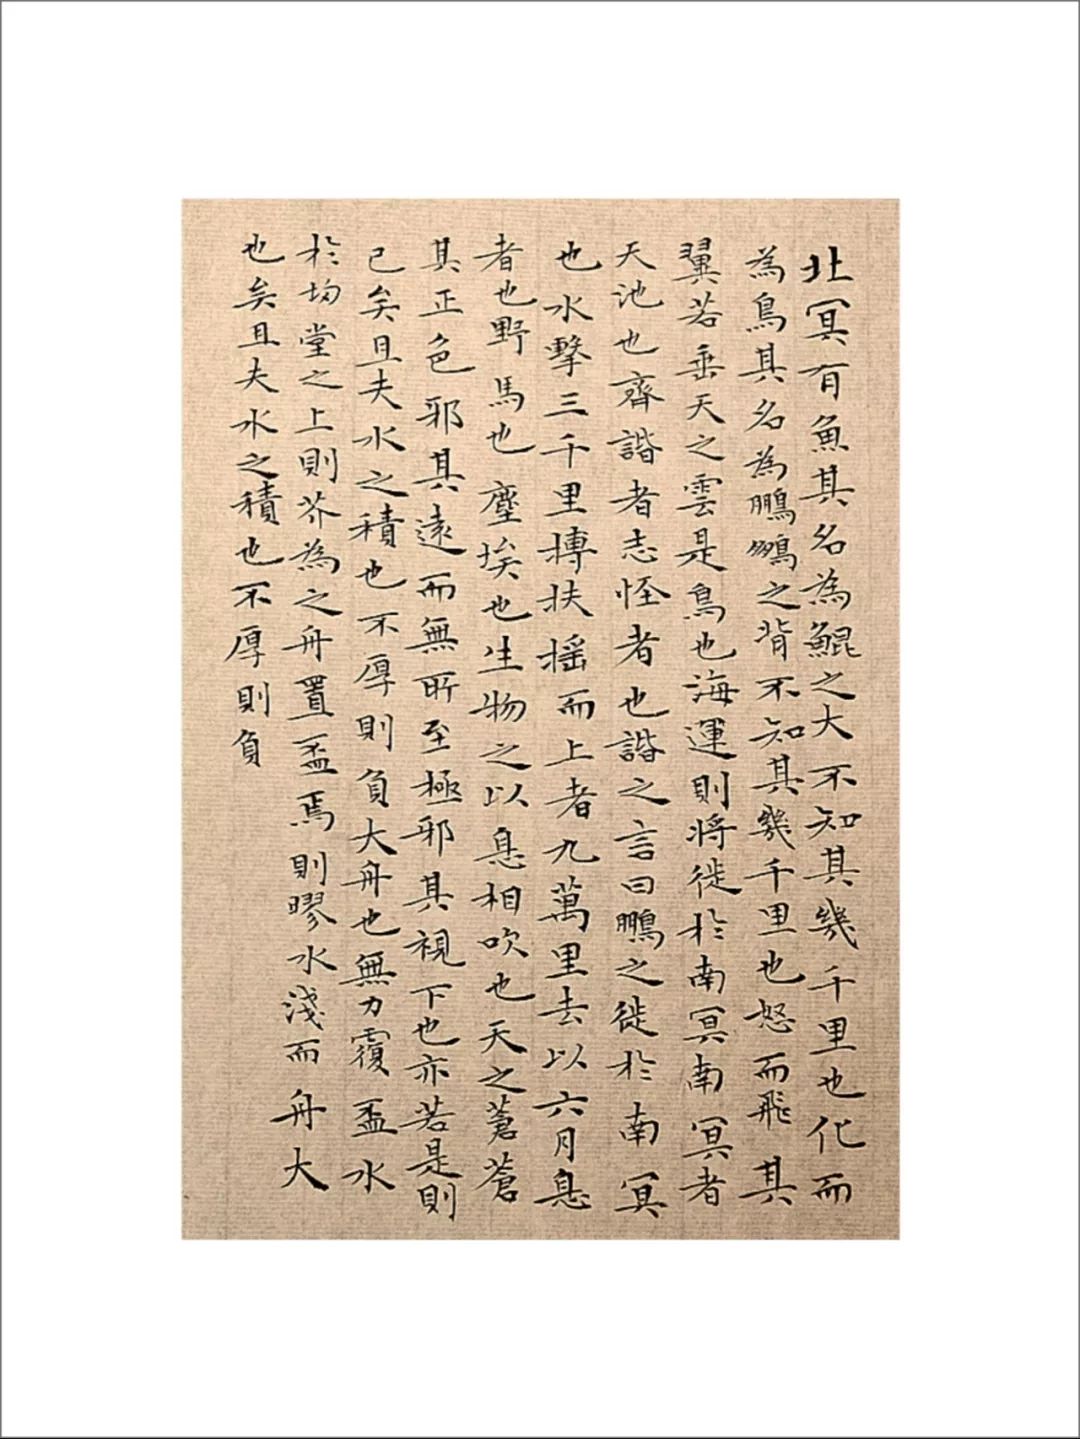 北冥有魚其名為鯤之大不知其幾千里也化而
為鳥其名為鵬鵬之背不知其幾千里也怒而飛其
翼若垂天之雲是鳥也海運則將徙於南冥南冥者
天池也齊諧者志怪者也諧之言曰鵬之徙於南冥
也水擊三千里摶扶搖而上者九萬里去以六月息
者也野馬也塵埃也生物之以息相吹也天之蒼蒼
其正色邪其遠而無所至極邪其視下也亦若是則
已矣且夫水之積也不厚則負大舟也無力覆盃水
於坳堂之上則芥為之舟置盃焉則膠水淺而舟大
也矣且夫水之積也不厚則負